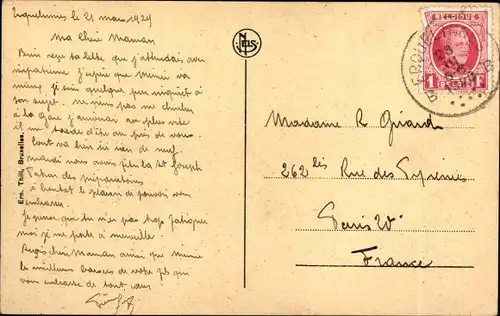 le 21 mars 1929
Ma Chère Maman
Bien reçu ta lettre que j'attendais avec
impatience J'espère que Mémée va
mieux je suis quelque peu inquiet à
son sujet. ne viens pas me chercher
à la Gare j'arriverai au plus vite
et il me tarde d'être au près de vous.
tout va bien ici rien de neuf.
mardi nous avons fêté la St Joseph
Patron des
à bientôt le plaisir de pouvoir vous
embrasser.
Je pense que tu n'es pas trop fatiguée
moi je me porte à merveille
Reçois chère Maman ainsi que Mémée
le meilleurs baisers de votre fils qui
vous embrasse de tout cœur
Ern. Thill, Bruxelles.
Nels
BELGIQUE
1 F
Madame R Girard
262 bis Rue des Pyrénées
Paris XX
France